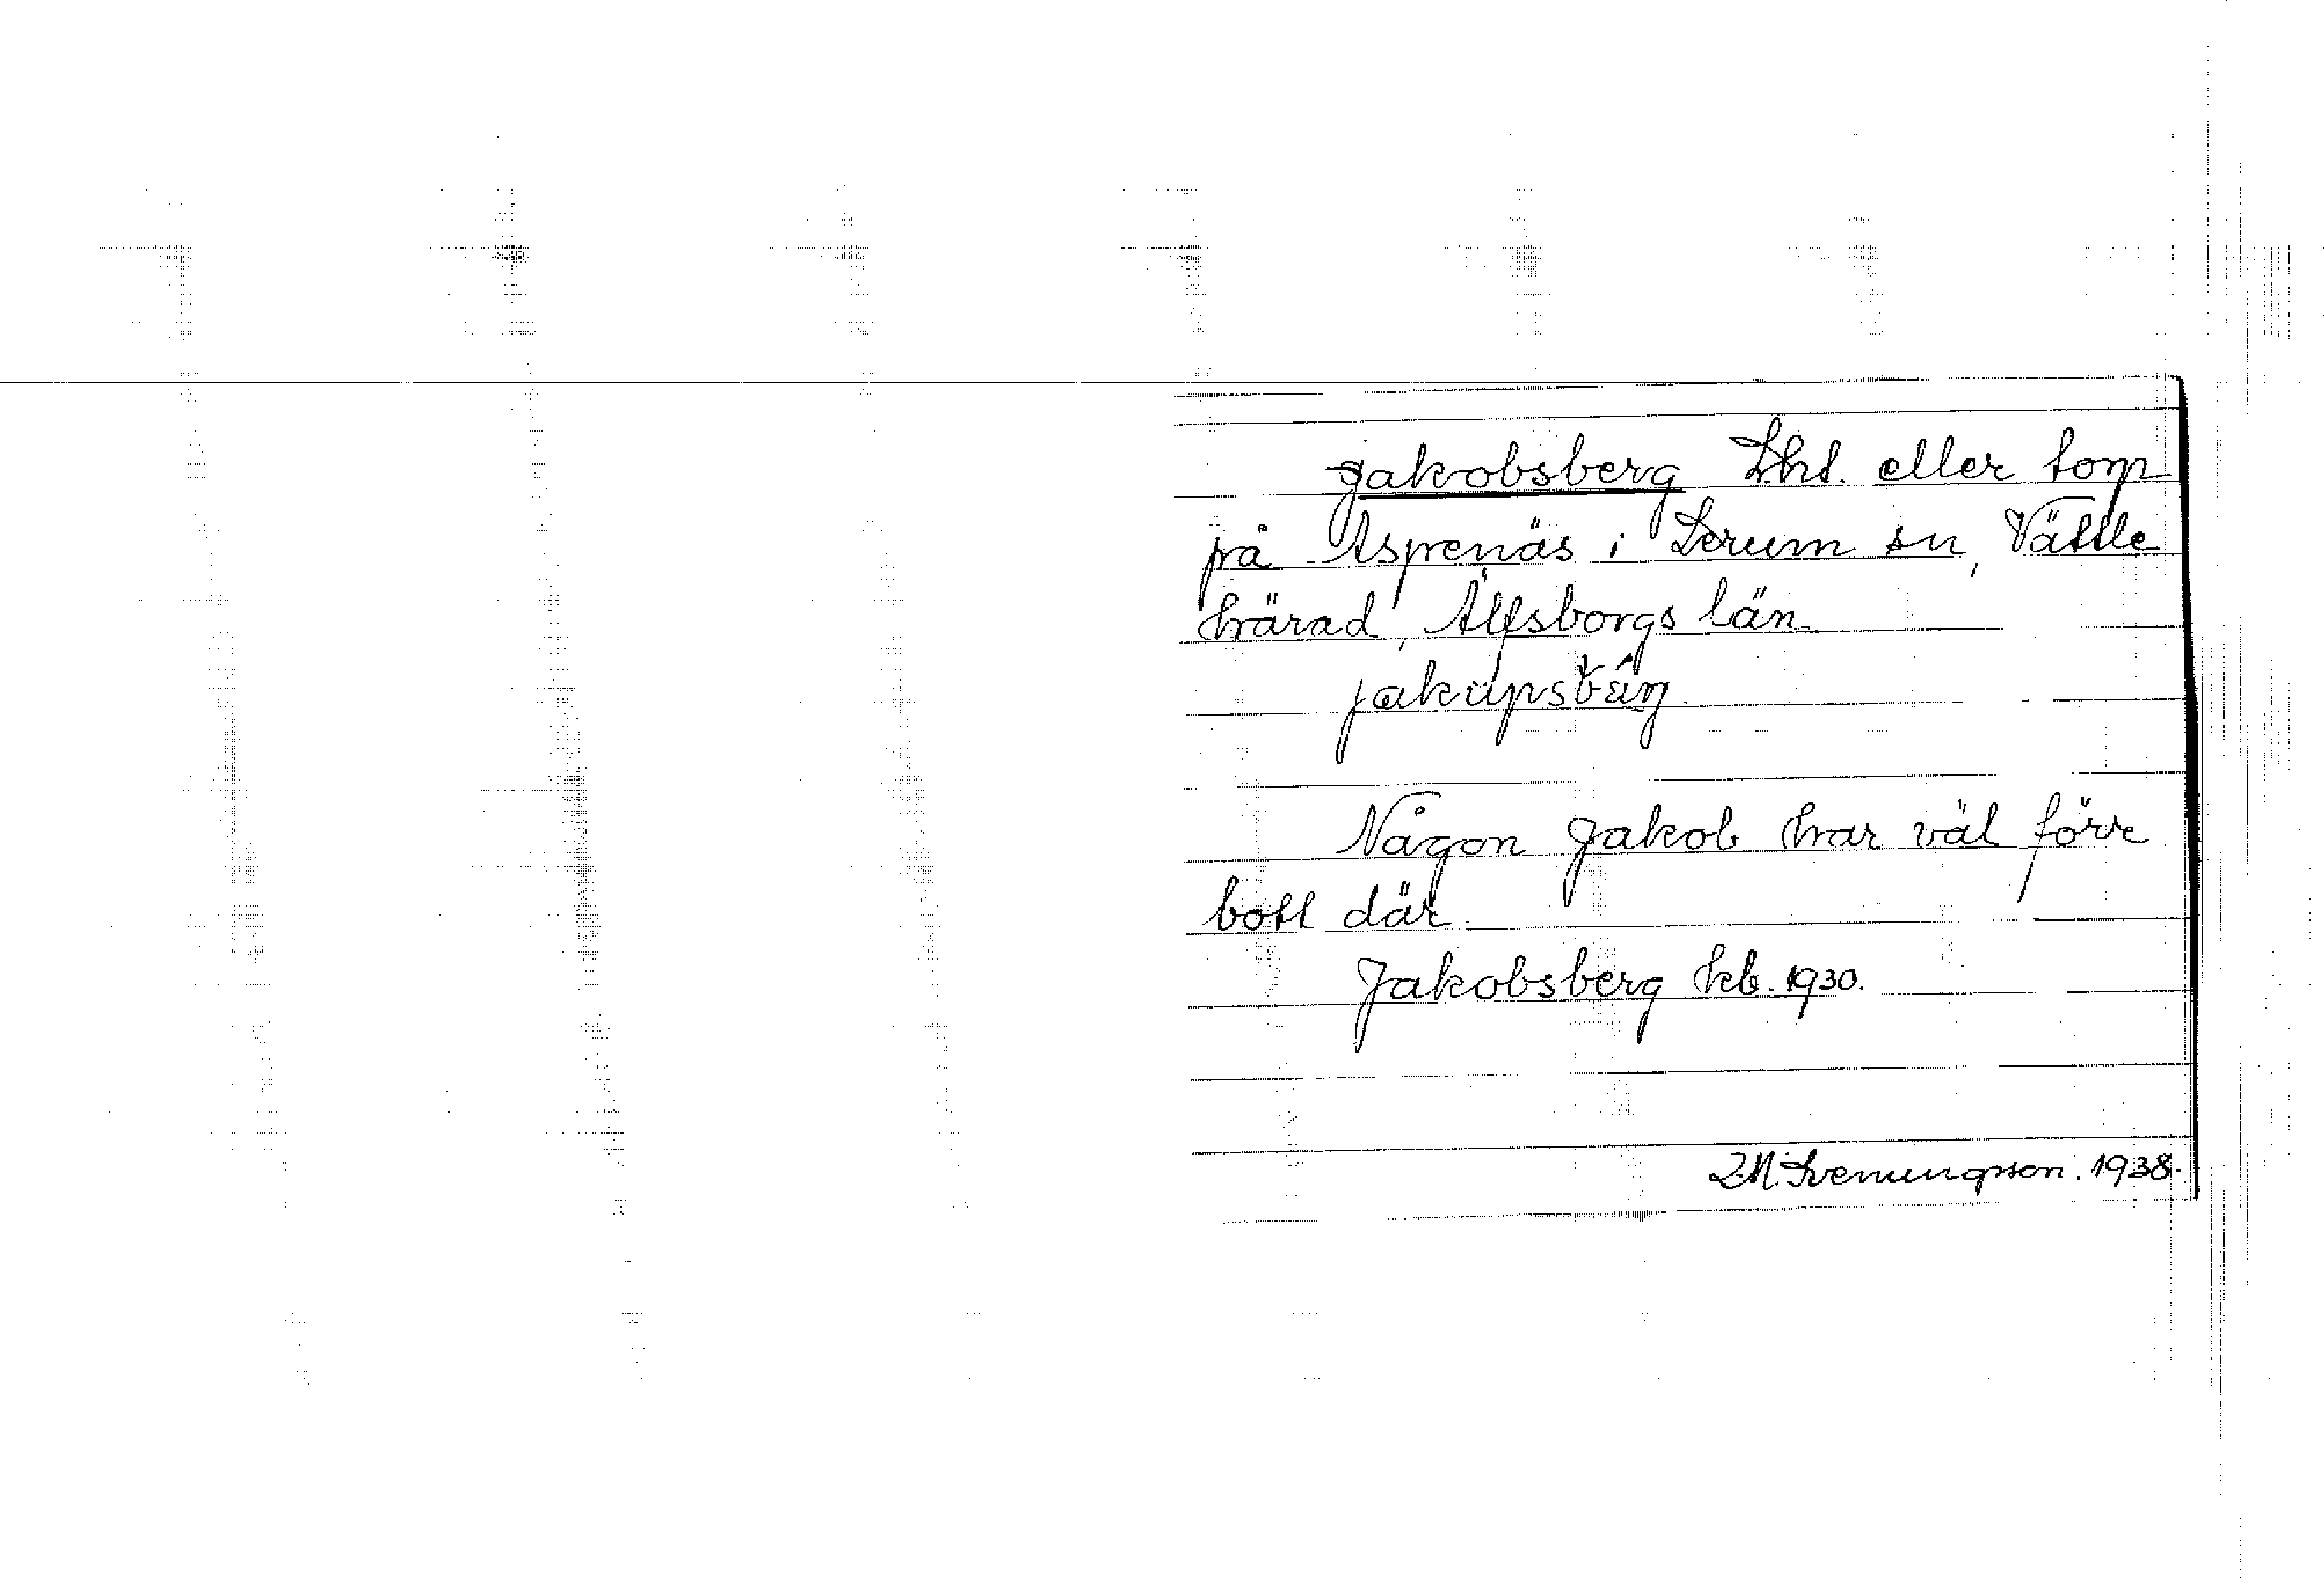 Jakobsberg Lht. eller torp
på Aspenäs i Lerum sn, Vättle
härad, Älfsborgs län.
jakŭpsbærj
Någon Jakob har väl förr
bott där.
Jakobsberg kb. 1930.
Svenungsson. 1938.